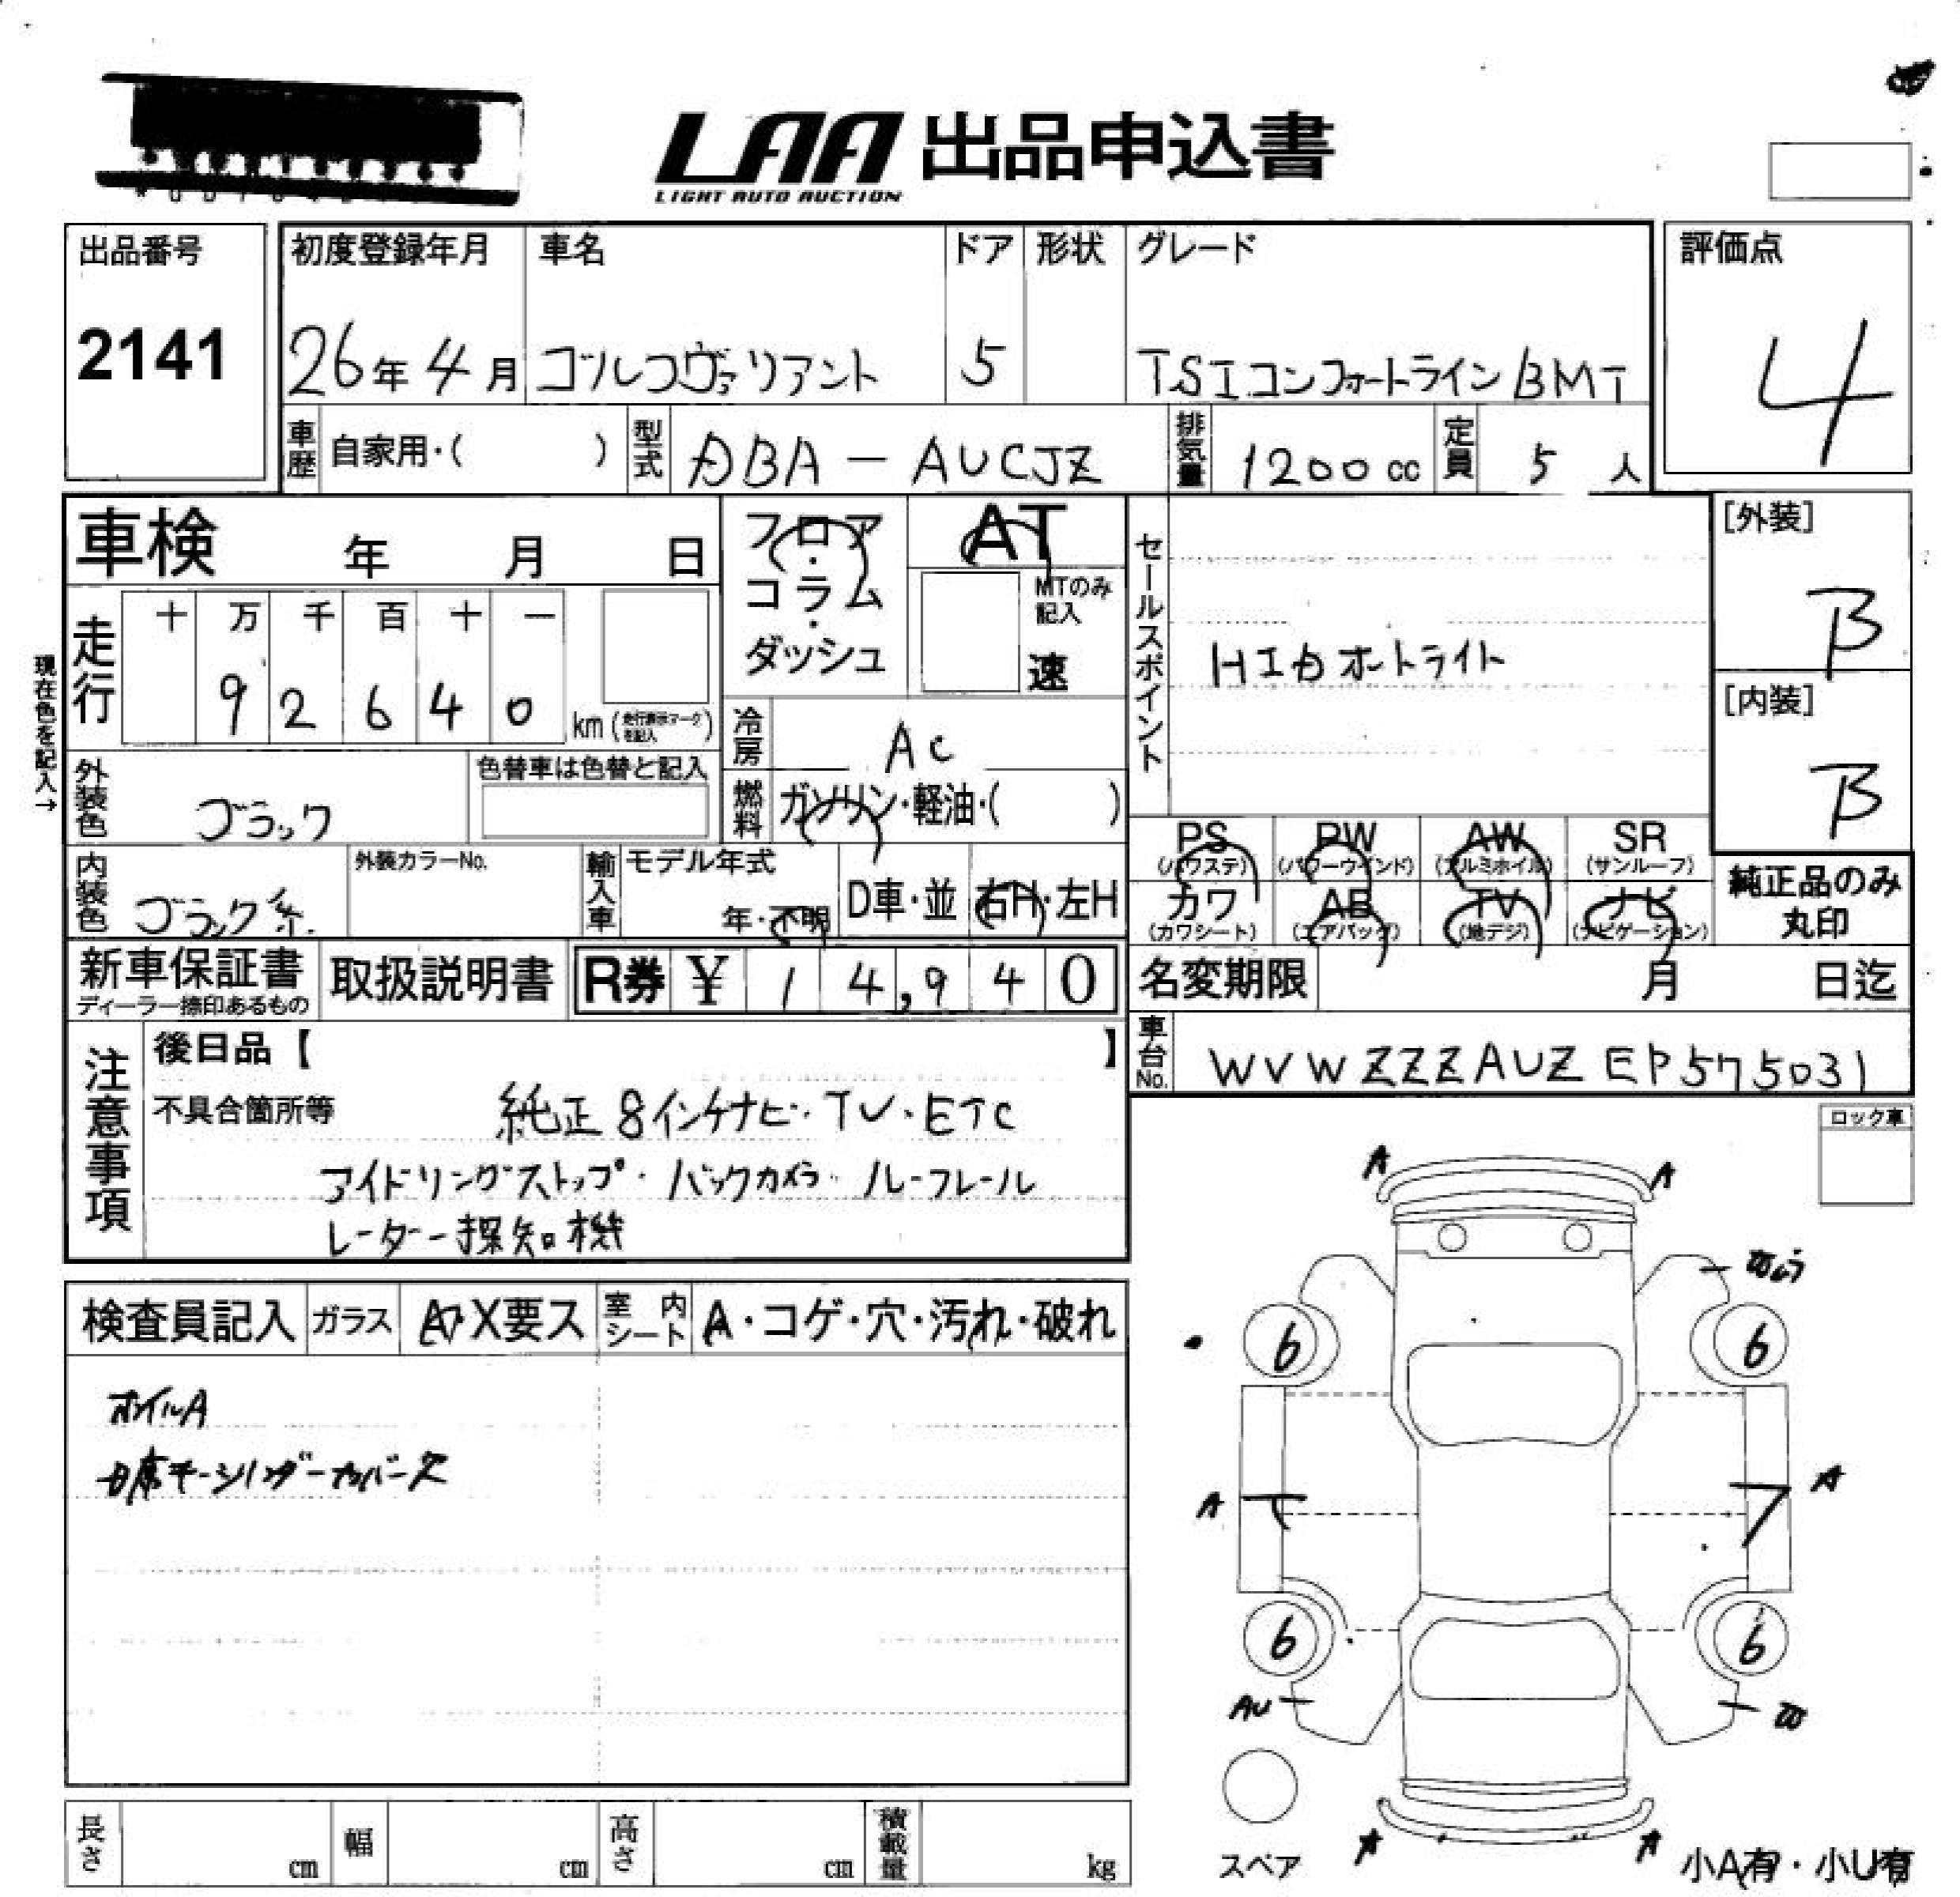 LAA 出品申込書
LIGHT AUTO AUCTION
出品番号
2141
初度登録年月
26年4月
車名
ゴルフヴァリアント
ドア
5
形状
グレード
TSIコンフォートラインBMT
評価点
4
車歴 自家用・( )
型式 DBA-AUCJZ
排気量 1200cc
定員 5人
車検 年 月 日
フロア・コラム・ダッシュ
AT
MTのみ記入
速
セールスポイント
HIDオートライト
[外装]
B
[内装]
B
現在色を記入→
走行
十 万 千 百 十 一
9 2 6 4 0 km (走行表示マークを記入)
冷房 AC
外装色 ブラック
色替車は色替と記入
燃料 ガソリン・軽油・( )
内装色 ブラック系
外装カラーNo.
輸入車 モデル年式
年・不明
D車・並
右H・左H
PS (パワステ)
PW (パワーウインド)
AW (アルミホイル)
SR (サンルーフ)
カワ (カワシート)
AB (エアバッグ)
TV (地デジ)
ナビ (ナビゲーション)
純正品のみ丸印
新車保証書
ディーラー捺印あるもの
取扱説明書
R券 ¥ 14,940
名変期限 月 日迄
車台No. WVWZZZAUZEP575031
注意事項
後日品【 】
不具合箇所等
純正8インチナビ・TV・ETC
アイドリングストップ・バックカメラ・ルーフレール
レーダー探知機
ロック車
検査員記入
ガラス A・X要ス
室内シート A・コゲ・穴・汚れ・破れ
ホイルA
カバー欠
A A
6 6
A A
6 6
AU
A A
スペア
小A有・小U有
長さ cm
幅 cm
高さ cm
積載量 kg